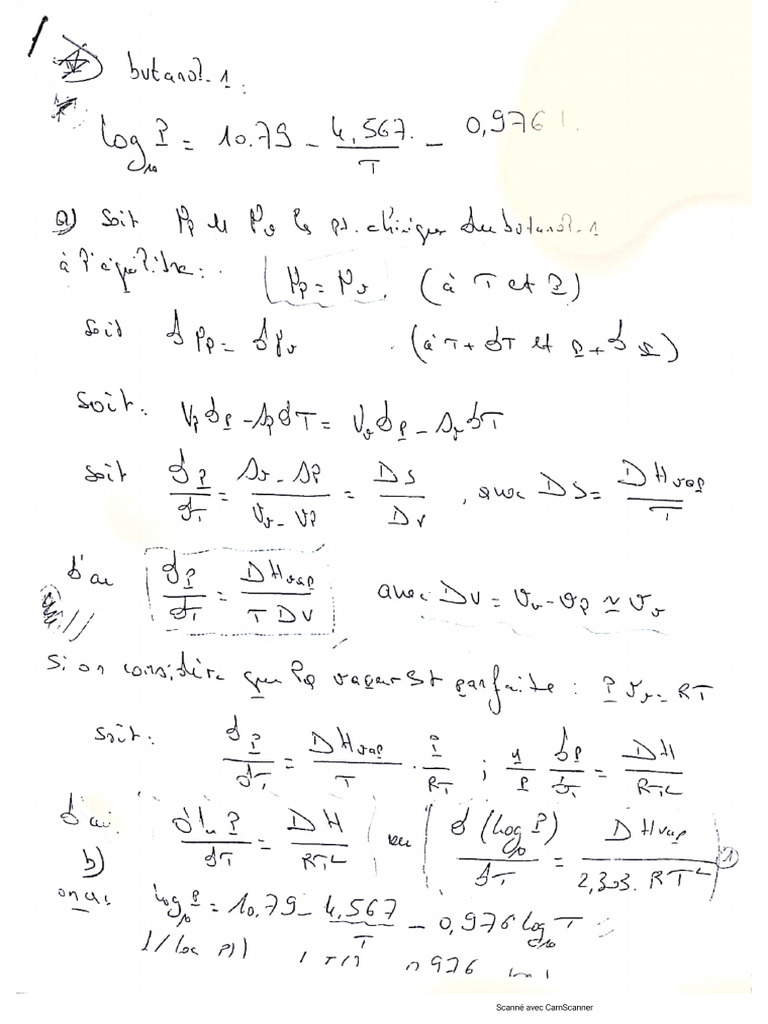 butanol-1:
log₁₀ P = 10.79 - 4,567 / T - 0,976
a) Soit μp et μv les pt. chimiques du butanol-1
à l'équilibre: μp = μv (à T et P)
soit dμp = dμv (à T + dT et P + dP)
Soit: Vp dP - Sp dT = Vv dP - Sv dT
soit dP/dT = (Sv - Sp)/(Vv - Vp) = DS/DV, avec DS = DHvap/T
d'où dP/dT = DHvap/(T DV) avec DV = Vv - Vp ≃ Vv
Si on considère que la vapeur est parfaite: P Vv = RT
Soit: dP/dT = DHvap/T · P/RT ; 1/P dP/dT = DH/RT²
d'où d ln P/dT = DH/RT² ou d(log₁₀ P)/dT = DHvap/(2,303. RT²) 1
b)
on a: log₁₀ P = 10,79 - 4,567/T - 0,976 log₁₀ T
Scanné avec CamScanner